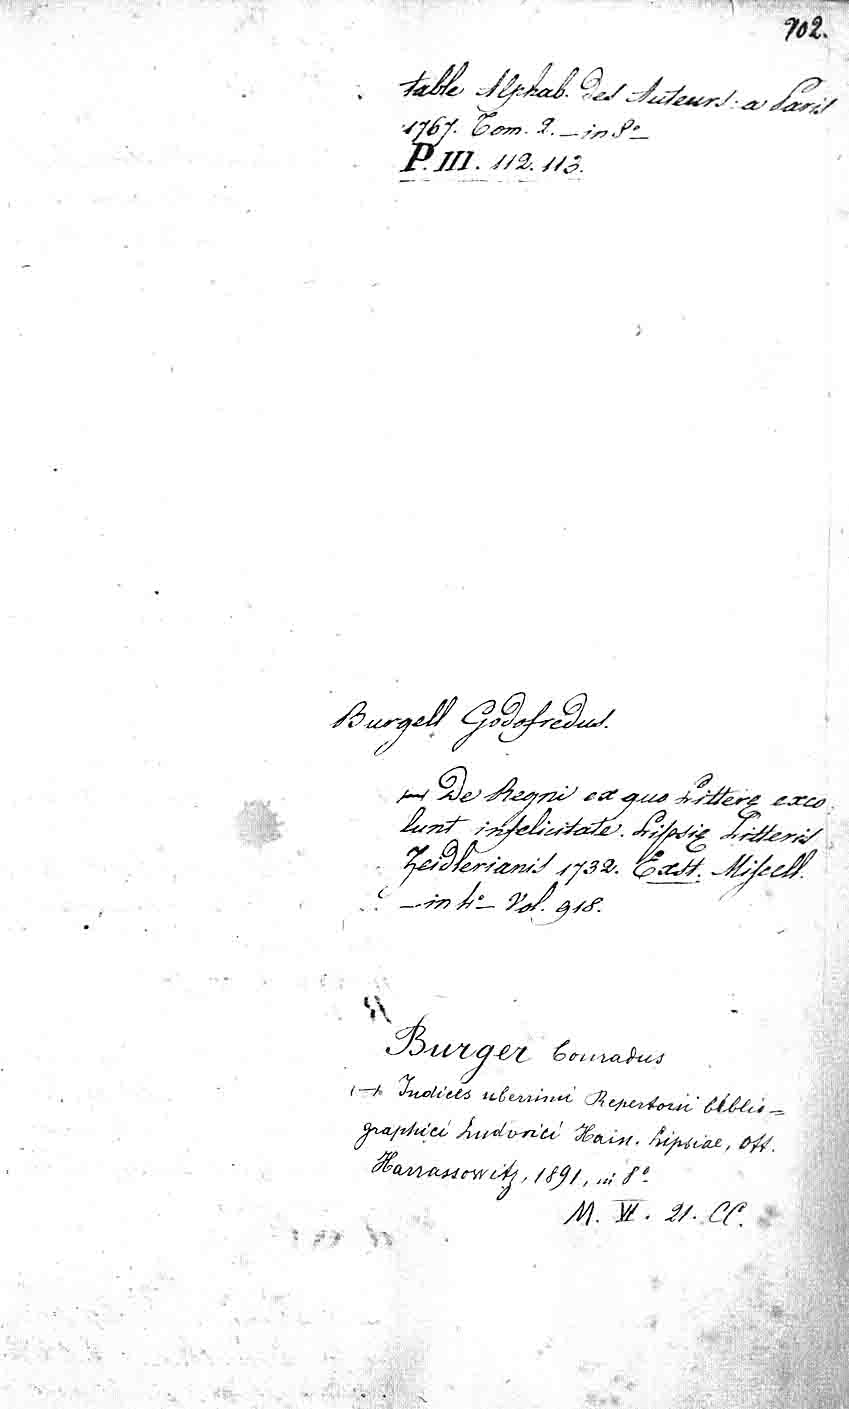 902.
table Alphab. des Auteurs: a Paris
1767. Tom. 2. — in 8° —
P. III. 112. 113.
Burgell Godofredus.
De Regni ex quo Litterę exco
lunt infelicitate. Lipsię Litteris
Zeidlerianis 1732. Exst. Miscell.
— in 4° — Vol. 918.
Burger Conradus
Indices uberrimi Repertorii biblio=
graphici Ludovici Hain. Lipsiae, Ott.
Harrassowitz, 1891, in 8°.
M. VI. 21. CC.